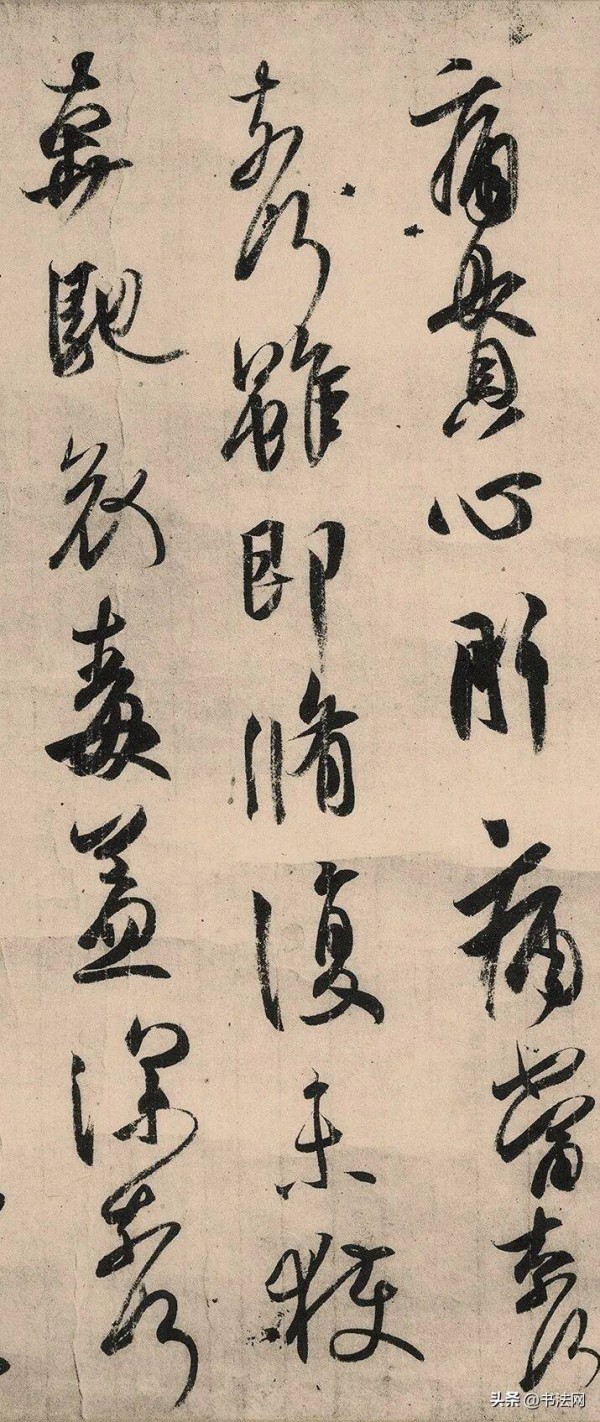 痛貫心肝痛當奈何
奈何雖即脩復未獲
奔馳哀毒益深奈何
头条 @书法网